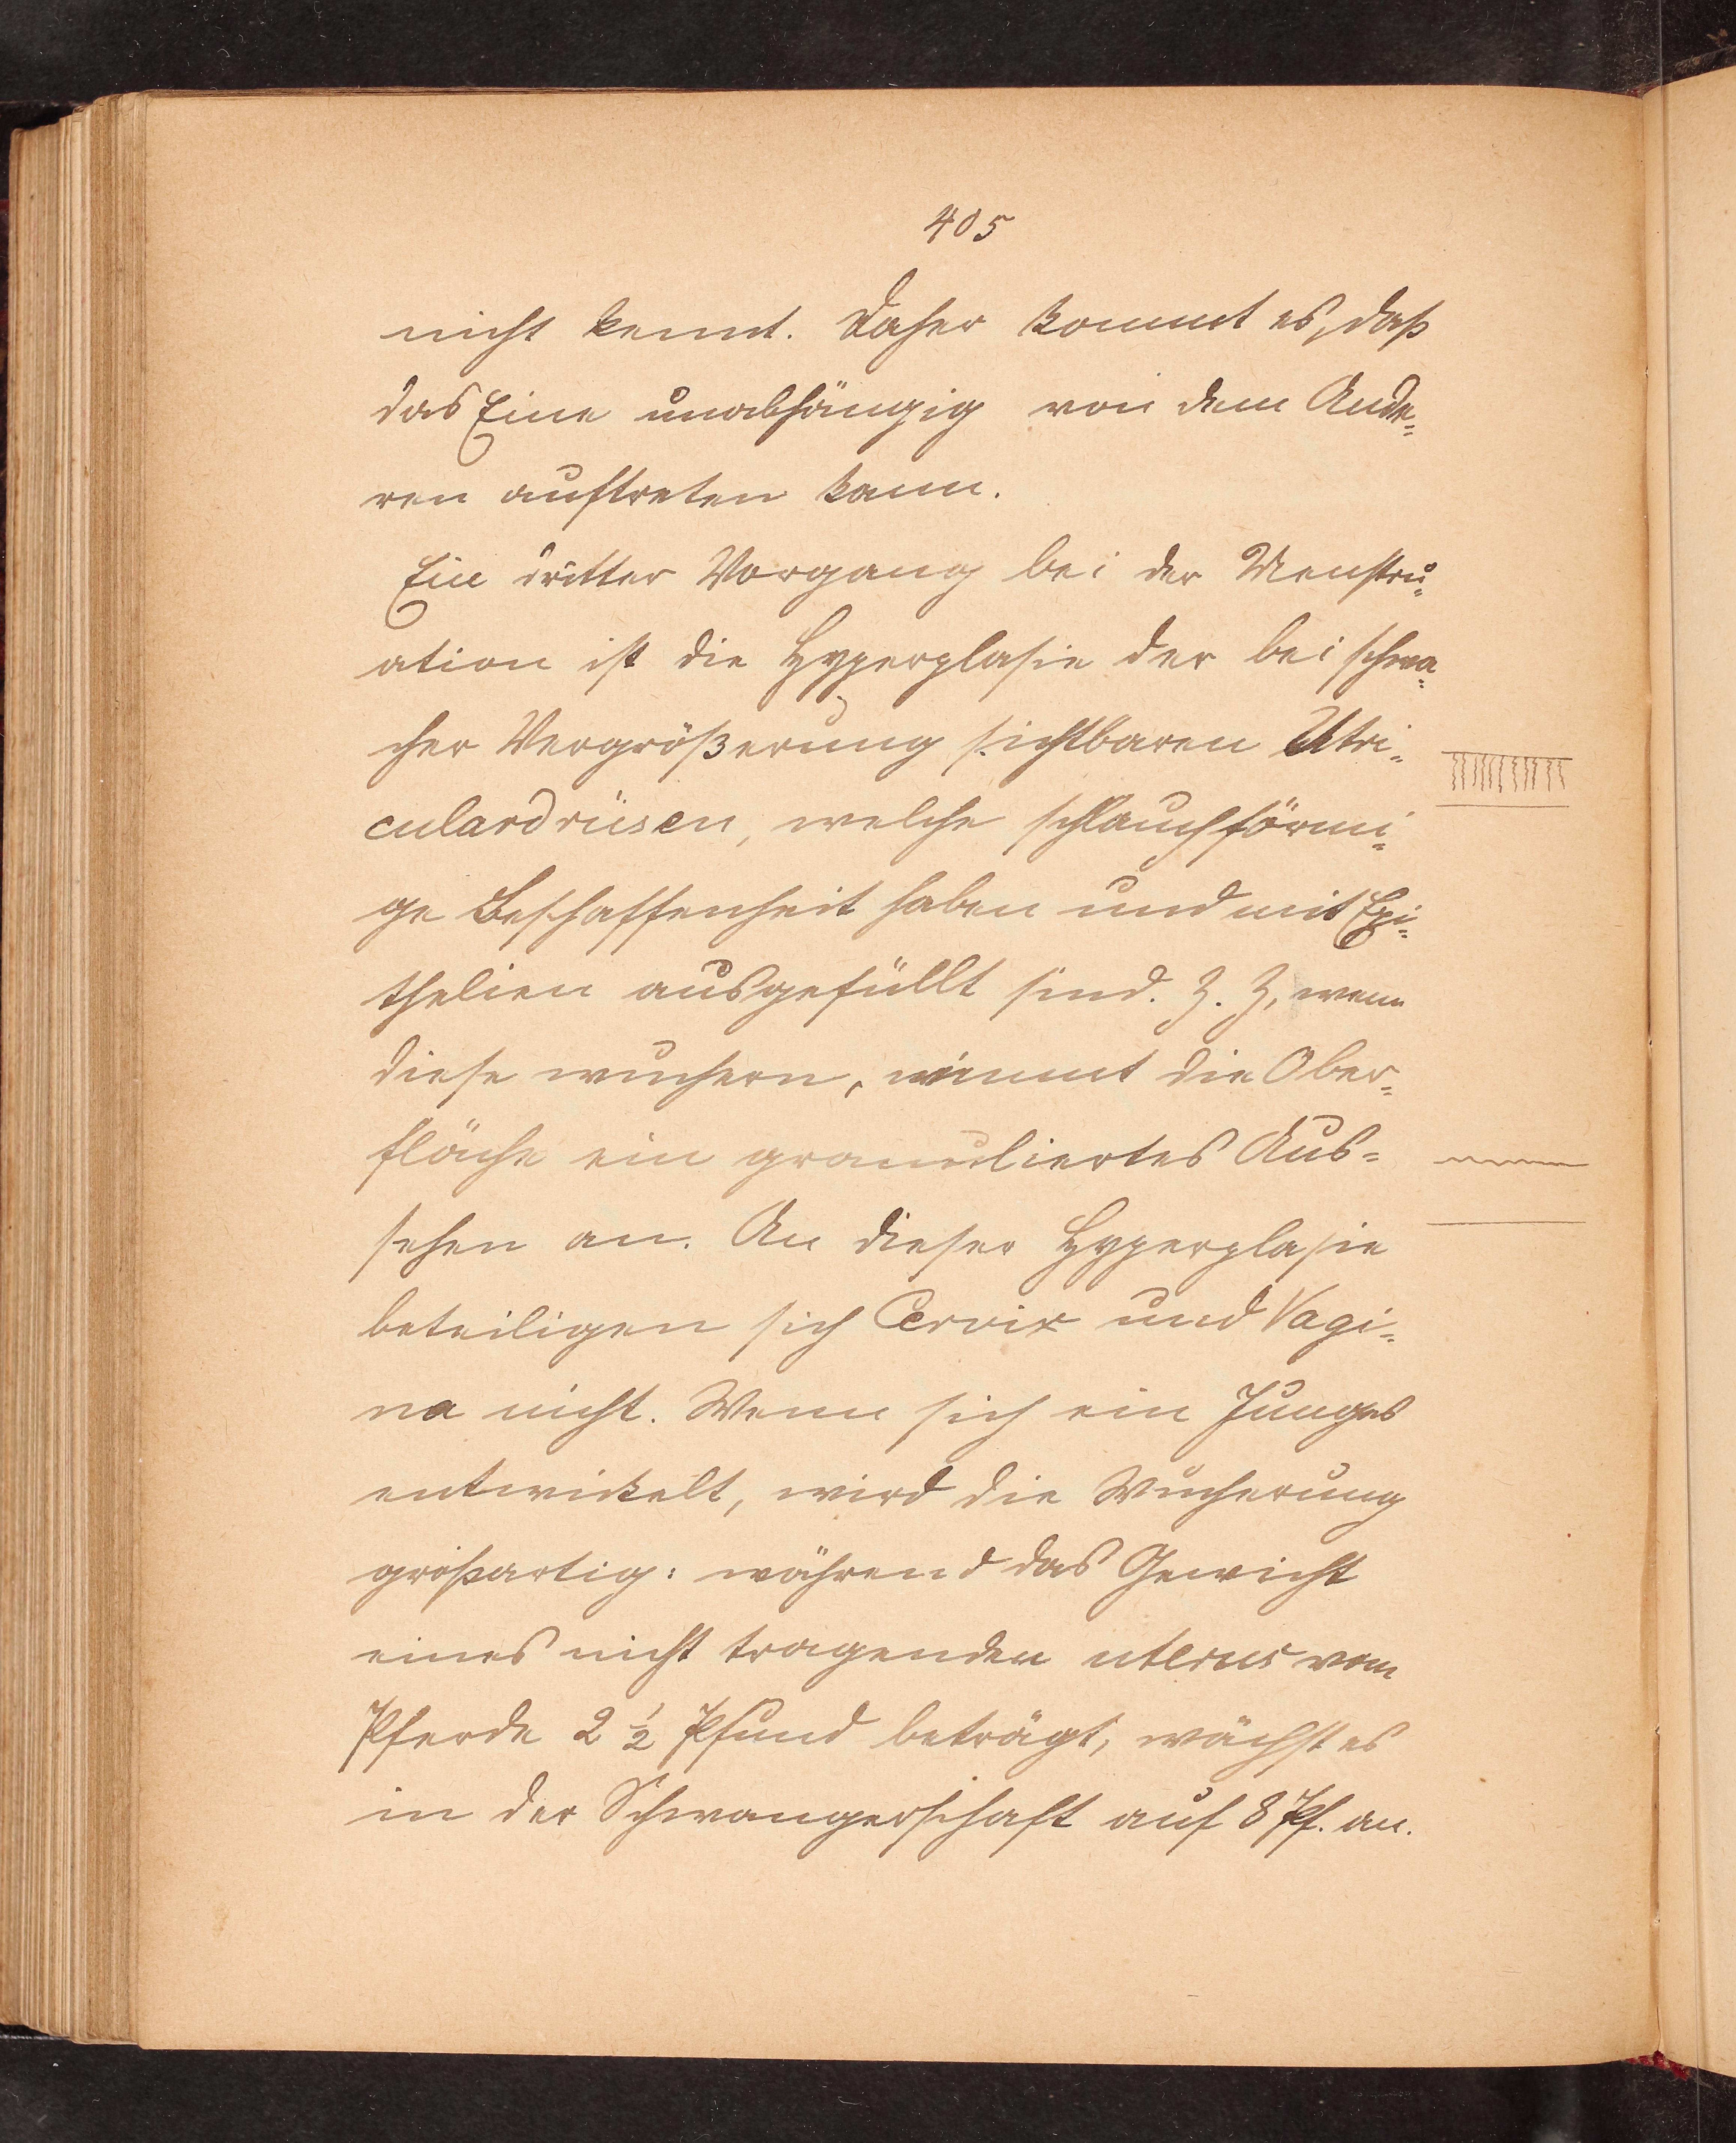 405
nicht kennt. Daher kommt es, daß
das Eine unabhängig von dem Ande=
ren auftreten kann.
Ein dritter Vorgang bei der Menstru=
ation ist die Hyperplasie der bei schwa=
cher Vergrößerung sichtbaren Utri=
culardrüsen, welche schlauchförmi=
ge Beschaffenheit haben und mit Epi=
thelien ausgefüllt sind. Z. Z, wenn
diese wuchern, nimmt die Ober=
fläche ein granuliertes Aus=
sehen an. An dieser Hyperplasie
beteiligen sich Cervix und Vagi=
na nicht. Wenn sich ein Junges
entwickelt, wird die Wucherung
großartig: während das Gewicht
eines nicht tragenden uterus vom
Pferde 2 ½ Pfund beträgt, wächst es
in der Schwangerschaft auf 8 Pf. an.